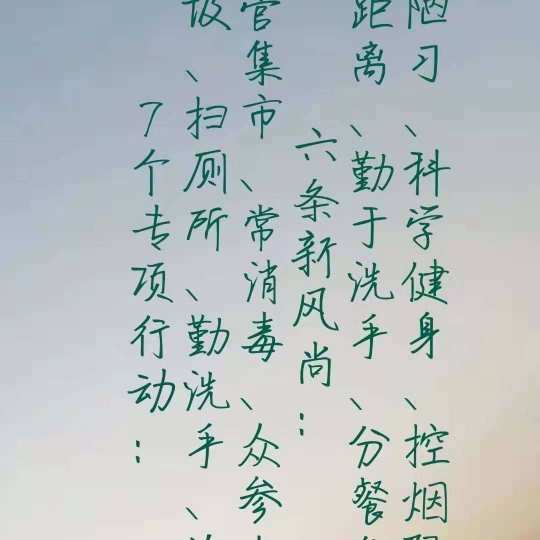 7个专项行动：
圾、扫厕所、勤洗手、
管集市、常消毒、众参
六条新风尚：
距离、勤于洗手、分餐
陋习、科学健身、控烟